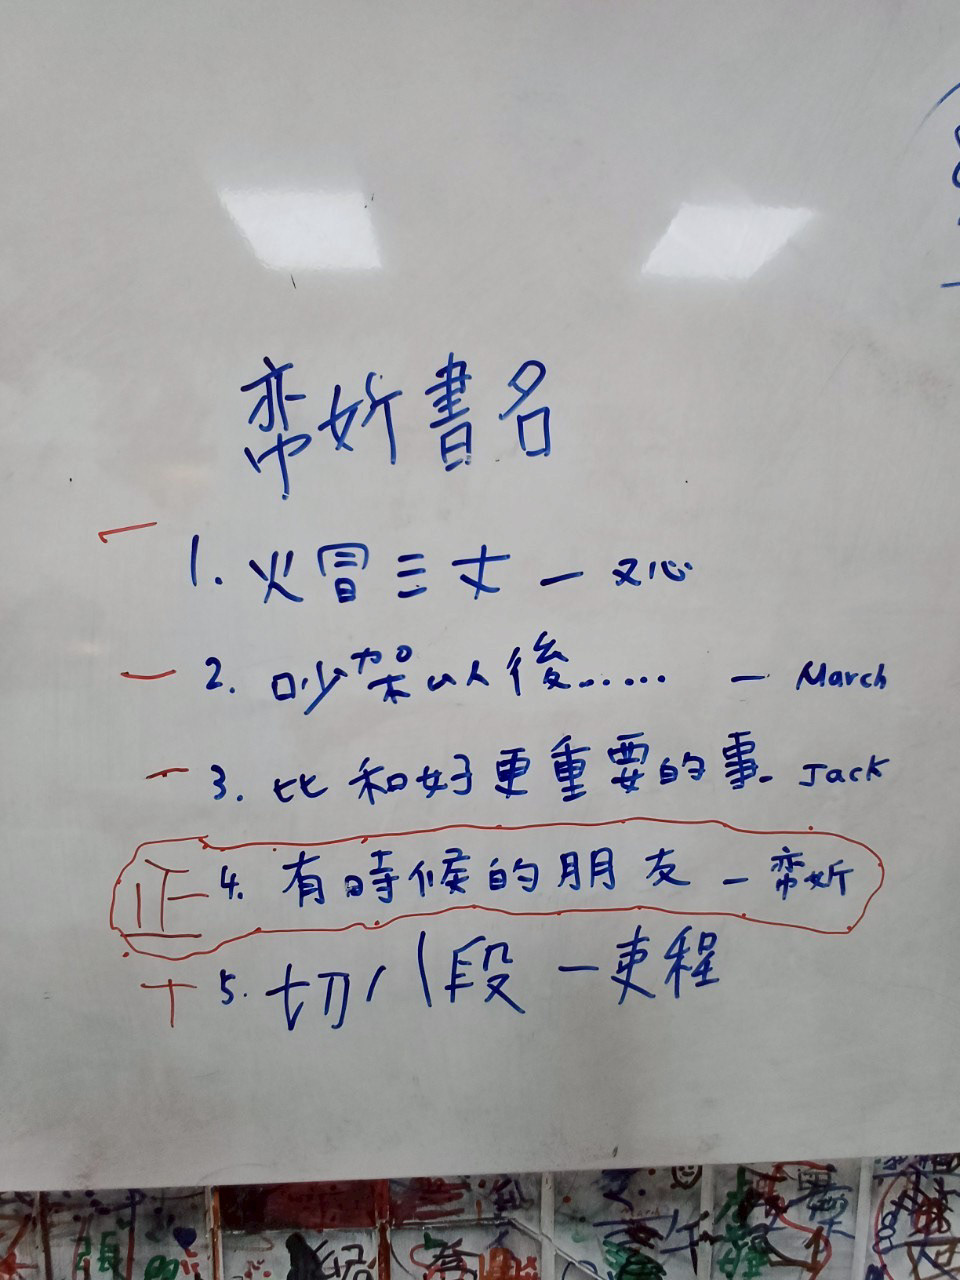 書名
1. 火冒三丈 — 又心
2. 吵架以後...... — March
3. 比和好更重要的事- Jack
正 4. 有時候的朋友 —
5. 切八段 — 吏程